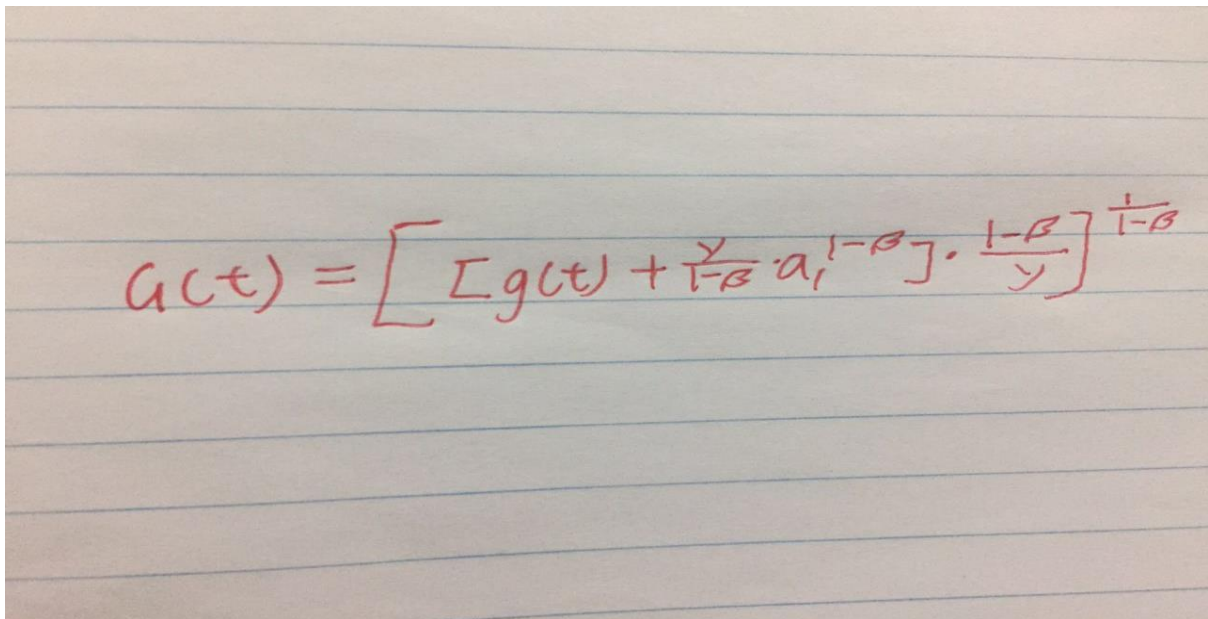 G(t) = [ [g(t) + y/(1-β) · a₁^(1-β)] · (1-β)/y ]^(1/(1-β))